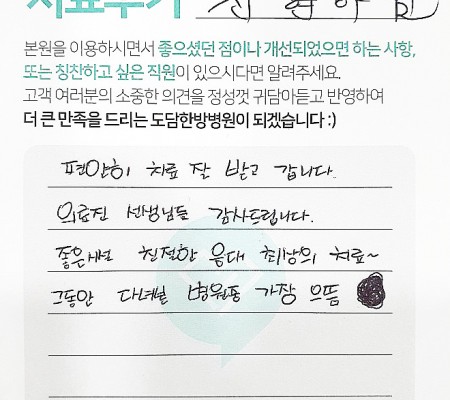 치료후기
본원을 이용하시면서 좋으셨던 점이나 개선되었으면 하는 사항,
또는 칭찬하고 싶은 직원이 있으시다면 알려주세요.
고객 여러분의 소중한 의견을 정성껏 귀담아듣고 반영하여
더 큰 만족을 드리는 도담한방병원이 되겠습니다 :)
편안히 치료 잘 받고 갑니다.
의료진 선생님들 감사드립니다.
좋은시설 친절한 응대 최상의 치료~
그동안 다녀본 병원중 가장 으뜸